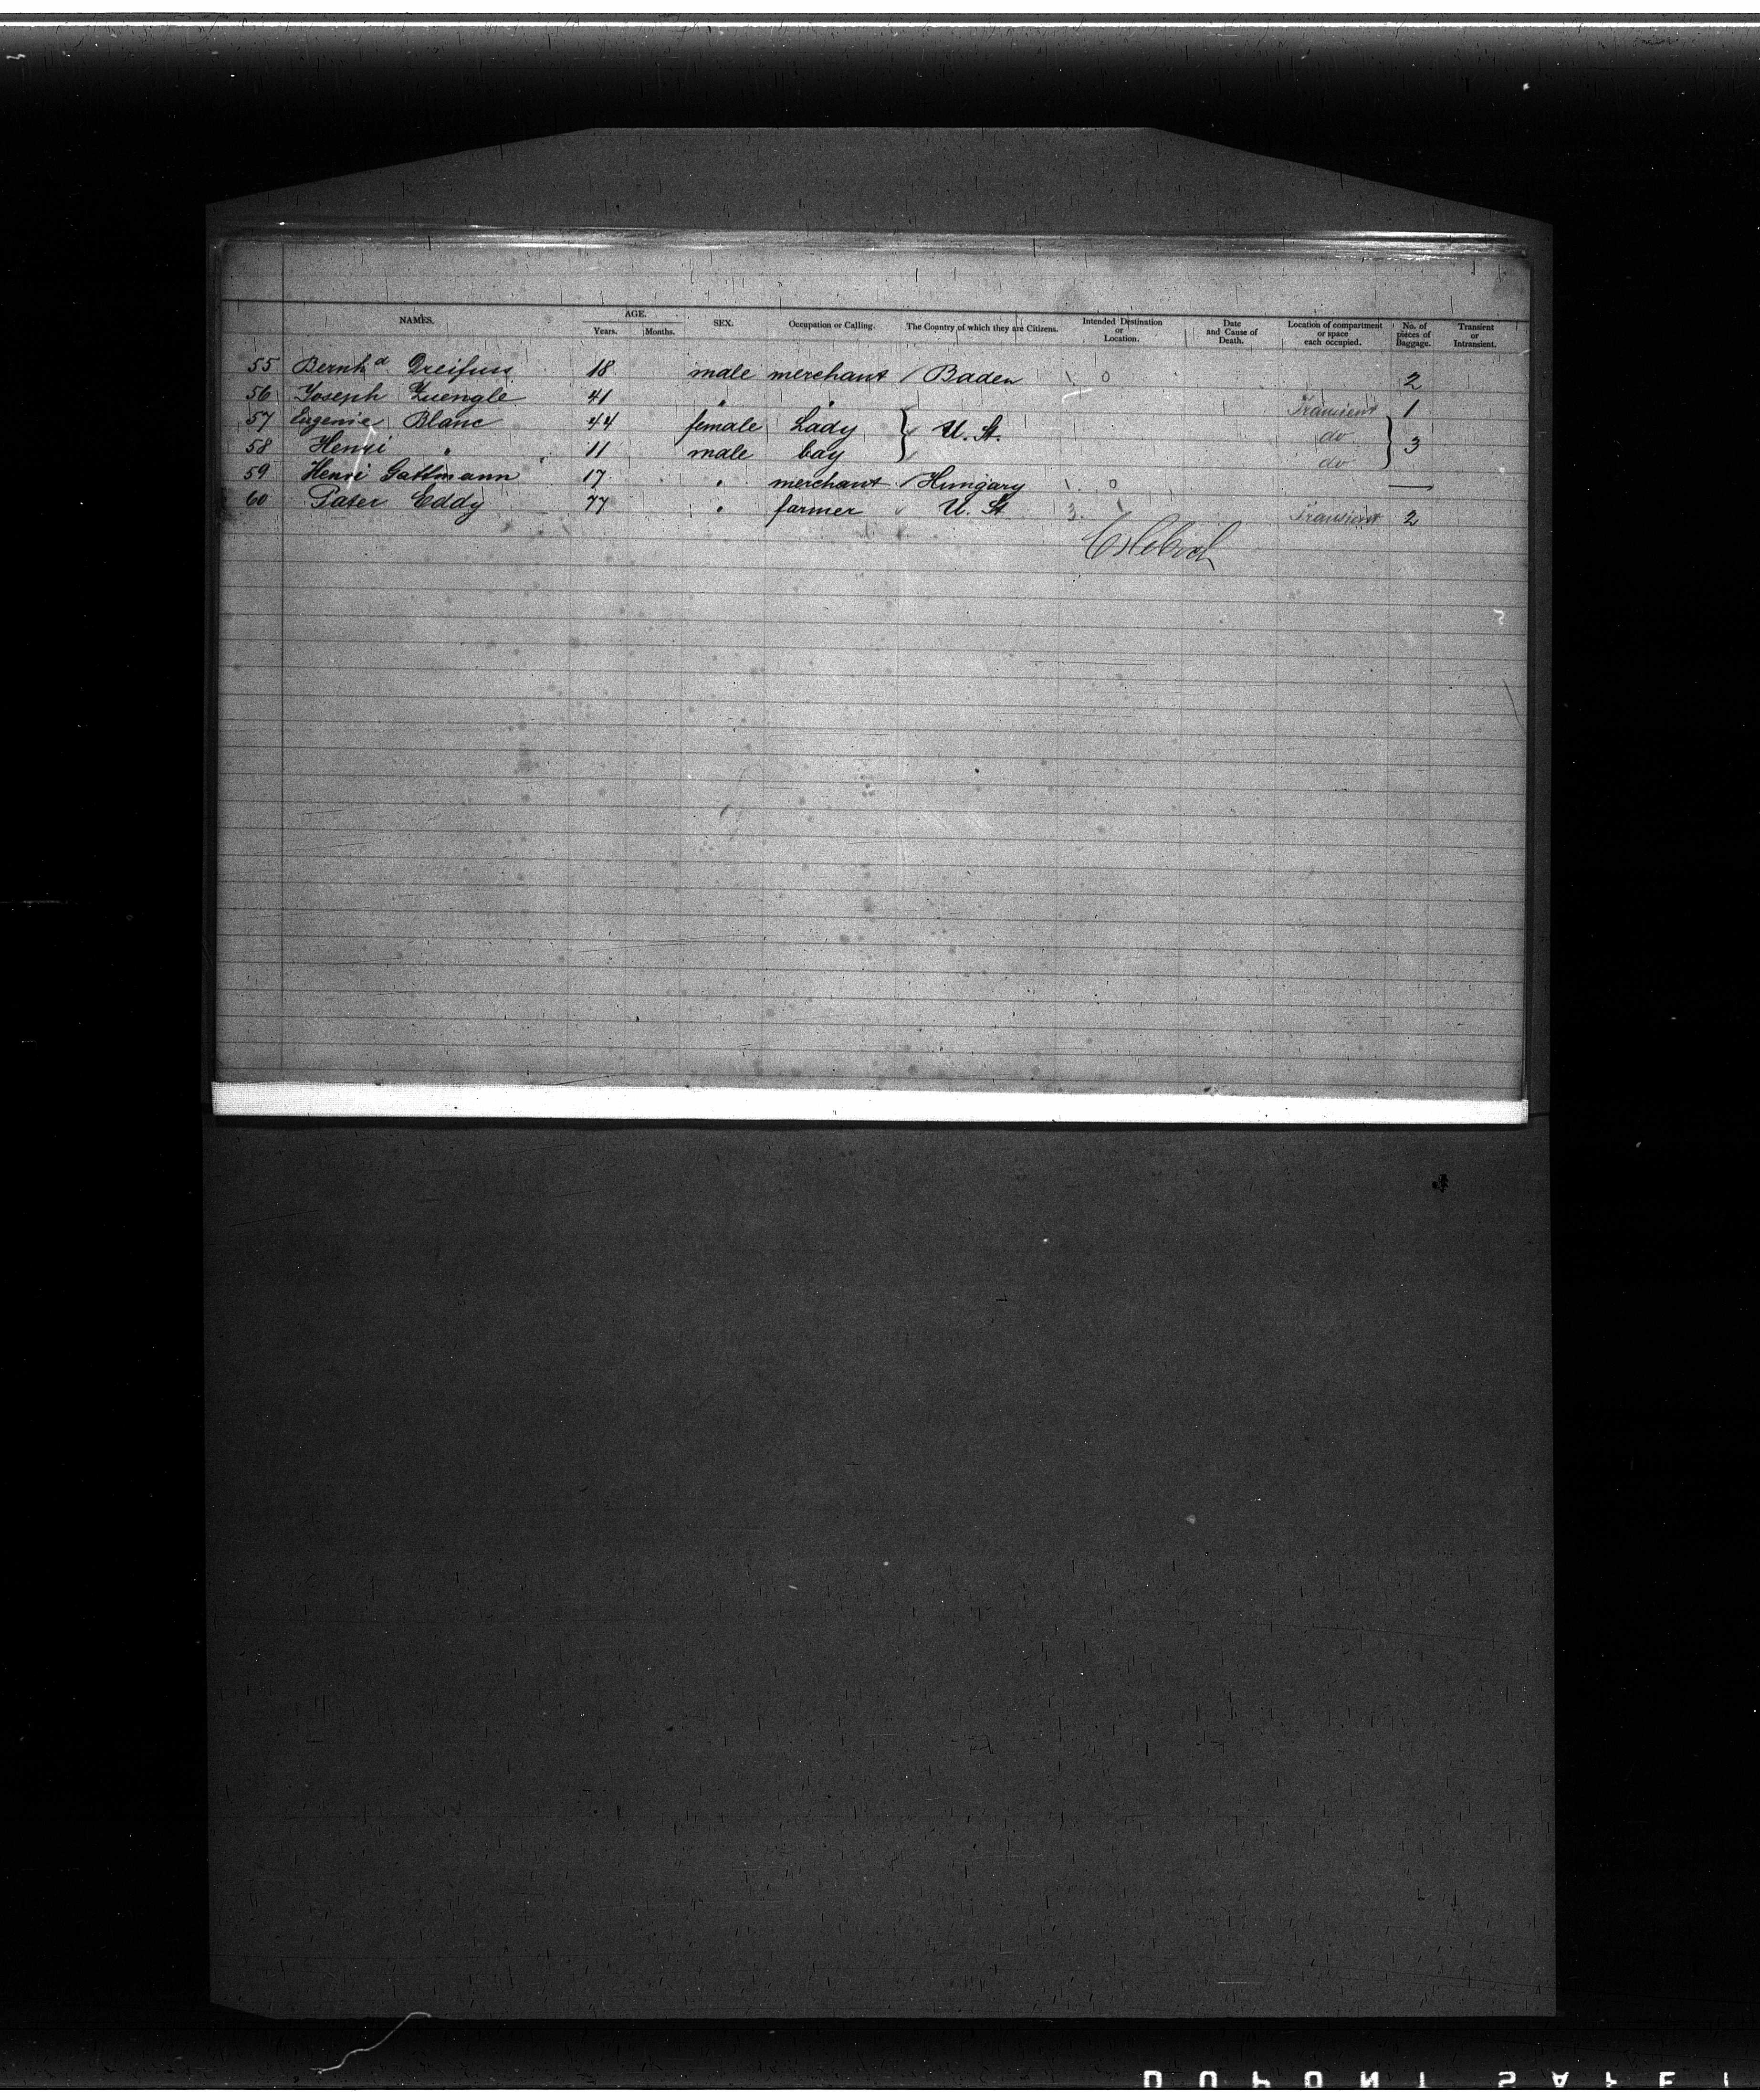 NAMES. AGE. Years. Months. SEX. Occupation or Calling. The Country of which they are Citizens. Intended Destination or Location. Date and Cause of Death. Location of compartment or space each occupied. No. of pieces of Baggage. Transient or Intransient.
55 Bernhd Dreifuss 18 male merchant / Baden 1. 0 2
56 Joseph Zuengle 41 " " Transient 1
57 Eugenie Blanc 44 female Lady } U. St. do } 3
58 Henri " 11 male boy do
59 Henri Gattmann 17 " merchant / Hungary 1. 0 —
60 Pater Eddy 77 " farmer U. St 3. Transient 2